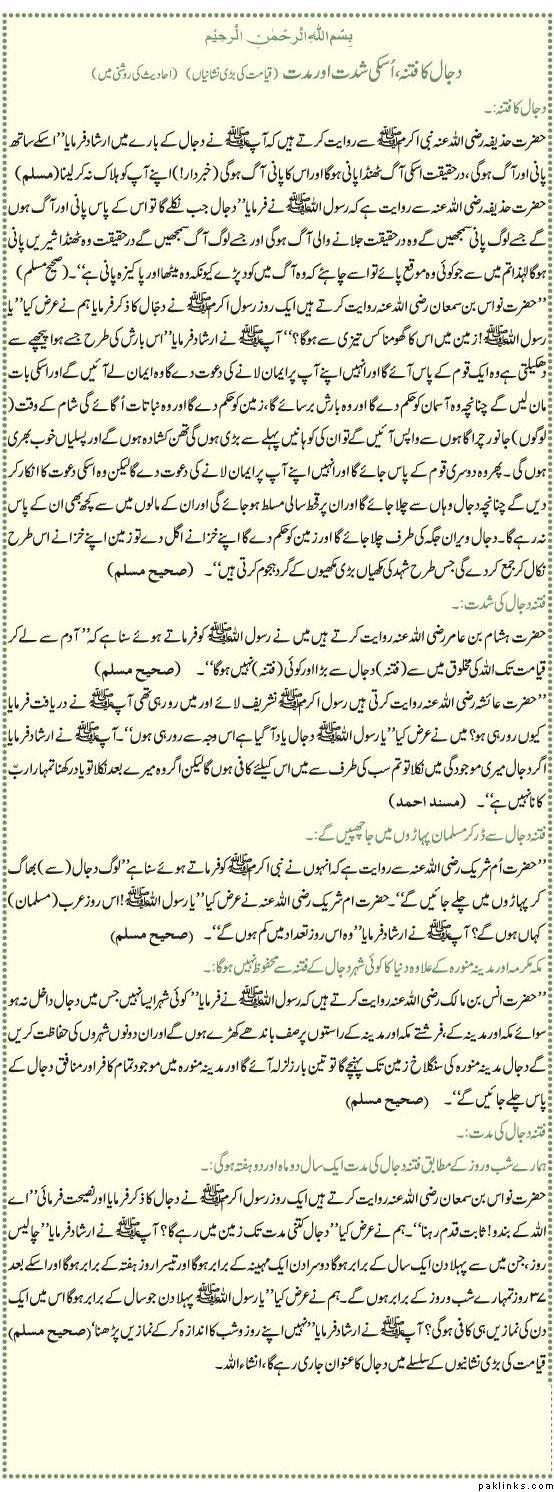 بِسْمِ اللهِ الرَّحْمٰنِ الرَّحِيْمِ
دجال کا فتنہ، اُسکی شدت اور مدت (قیامت کی بڑی نشانیاں) (احادیث کی روشنی میں)
دجال کا فتنہ:۔
حضرت حذیفہ رضی اللہ عنہ نبی اکرم ﷺ سے روایت کرتے ہیں کہ آپ ﷺ نے دجال کے بارے میں ارشاد فرمایا ’’اسکے ساتھ
پانی اور آگ ہوگی، درحقیقت اسکی آگ ٹھنڈا پانی ہوگا اور اس کا پانی آگ ہوگی (خبردار!) اپنے آپ کو ہلاک نہ کر لینا (مسلم)
حضرت حذیفہ رضی اللہ عنہ سے روایت ہے کہ رسول اللہ ﷺ نے فرمایا ’’دجال جب نکلے گا تو اس کے پاس پانی اور آگ ہوں
گے جسے لوگ پانی سمجھیں گے وہ درحقیقت جلانے والی آگ ہوگی اور جسے لوگ آگ سمجھیں گے درحقیقت وہ ٹھنڈا شیریں پانی
ہوگا لہٰذا تم میں سے جو کوئی وہ موقع پائے تو اسے چاہئے کہ وہ آگ میں کود پڑے کیونکہ وہ میٹھا اور پاکیزہ پانی ہے‘‘۔ (صحیح مسلم)
’’حضرت نواس بن سمعان رضی اللہ عنہ روایت کرتے ہیں ایک روز رسول اکرم ﷺ نے دجّال کا ذکر فرمایا ہم نے عرض کیا ’’یا
رسول اللہ ﷺ! زمین میں اس کا گھومنا کس تیزی سے ہوگا؟‘‘ آپ ﷺ نے ارشاد فرمایا ’’اس بارش کی طرح جسے ہوا پیچھے سے
دھکیلتی ہے وہ ایک قوم کے پاس آئے گا اور انہیں اپنے آپ پر ایمان لانے کی دعوت دے گا وہ ایمان لے آئیں گے اور اسکی بات
مان لیں گے چنانچہ وہ آسمان کو حکم دے گا اور وہ بارش برسائے گا، زمین کو حکم دے گا اور وہ نباتات اُگائے گی شام کے وقت (
لوگوں) جانور چراگاہوں سے واپس آئیں گے تو ان کی کوہانیں پہلے سے بڑی ہوں گی تھن کشادہ ہوں گے اور پسلیاں خوب بھری
ہوں گی۔ پھر وہ دوسری قوم کے پاس جائے گا اور انہیں اپنے آپ پر ایمان لانے کی دعوت دے گا لیکن وہ اسکی دعوت کا انکار کر
دیں گے چنانچہ دجال وہاں سے چلا جائے گا اور ان پر قحط سالی مسلط ہو جائے گی اور ان کے مالوں میں سے کچھ بھی ان کے پاس
نہ رہے گا۔ دجال ویران جگہ کی طرف چلا جائے گا اور زمین کو حکم دے گا اپنے خزانے اگل دے تو زمین اپنے خزانے اس طرح
نکال کر جمع کر دے گی جس طرح شہد کی مکھیاں بڑی مکھیوں کے گرد ہجوم کرتی ہیں‘‘۔ (صحیح مسلم)
فتنہ دجال کی شدت:۔
حضرت ہشام بن عامر رضی اللہ عنہ روایت کرتے ہیں میں نے رسول اللہ ﷺ کو فرماتے ہوئے سنا ہے کہ ’’آدم سے لے کر
قیامت تک اللہ کی مخلوق میں سے (فتنہ) دجال سے بڑا اور کوئی (فتنہ) نہیں ہوگا‘‘۔ (صحیح مسلم)
’’حضرت عائشہ رضی اللہ عنہ روایت کرتی ہیں رسول اکرم ﷺ تشریف لائے اور میں رو رہی تھی آپ ﷺ نے دریافت فرمایا
کیوں رو رہی ہو؟ میں نے عرض کیا ’’یا رسول اللہ ﷺ دجال یاد آ گیا ہے اس وجہ سے رو رہی ہوں‘‘۔ آپ ﷺ نے ارشاد فرمایا
اگر دجال میری موجودگی میں نکلا تو تم سب کی طرف سے میں اس کیلئے کافی ہوں گا لیکن اگر وہ میرے بعد نکلا تو یاد رکھنا تمہارا ربّ
کانا نہیں ہے‘‘۔ (مسند احمد)
فتنہ دجال سے ڈر کر مسلمان پہاڑوں میں جا چھپیں گے:۔
’’حضرت اُم شریک رضی اللہ عنہ سے روایت ہے کہ انہوں نے نبی اکرم ﷺ کو فرماتے ہوئے سنا ہے ’’لوگ دجال (سے) بھاگ
کر پہاڑوں میں چلے جائیں گے‘‘۔ حضرت ام شریک رضی اللہ عنہ نے عرض کیا ’’یا رسول اللہ ﷺ! اس روز عرب (مسلمان)
کہاں ہوں گے؟ آپ ﷺ نے ارشاد فرمایا ’’وہ اس روز تعداد میں کم ہوں گے‘‘۔ (صحیح مسلم)
مکہ مکرمہ اور مدینہ منورہ کے علاوہ دنیا کا کوئی شہر دجال کے فتنہ سے محفوظ نہیں ہوگا:۔
’’حضرت انس بن مالک رضی اللہ عنہ روایت کرتے ہیں کہ رسول اللہ ﷺ نے فرمایا ’’کوئی شہر ایسا نہیں جس میں دجال داخل نہ ہو
سوائے مکہ اور مدینہ کے، فرشتے مکہ اور مدینہ کے راستوں پر صف باندھے کھڑے ہوں گے اور ان دونوں شہروں کی حفاظت کریں
گے دجال مدینہ منورہ کی سنگلاخ زمین تک پہنچے گا تو تین بار زلزلہ آئے گا اور مدینہ منورہ میں موجود تمام کافر اور منافق دجال کے
پاس چلے جائیں گے‘‘۔ (صحیح مسلم)
فتنہ دجال کی مدت:۔
ہمارے شب و روز کے مطابق فتنہ دجال کی مدت ایک سال دو ماہ اور دو ہفتہ ہوگی:۔
حضرت نواس بن سمعان رضی اللہ عنہ روایت کرتے ہیں ایک روز رسول اکرم ﷺ نے دجال کا ذکر فرمایا اور نصیحت فرمائی ’’اے
اللہ کے بندو! ثابت قدم رہنا‘‘۔ ہم نے عرض کیا ’’دجال کتنی مدت تک زمین میں رہے گا؟ آپ ﷺ نے ارشاد فرمایا ’’چالیس
روز، جن میں سے پہلا دن ایک سال کے برابر ہوگا دوسرا دن ایک مہینہ کے برابر ہوگا اور تیسرا روز ہفتہ کے برابر ہوگا اور اسکے بعد
۳۷ روز تمہارے شب و روز کے برابر ہوں گے۔ ہم نے عرض کیا ’’یا رسول اللہ ﷺ پہلا دن جو سال کے برابر ہوگا اس میں ایک
دن کی نمازیں ہی کافی ہوگی؟ آپ ﷺ نے ارشاد فرمایا ’’نہیں اپنے روز و شب کا اندازہ کر کے نمازیں پڑھنا‘ (صحیح مسلم)
قیامت کی بڑی نشانیوں کے سلسلے میں دجال کا عنوان جاری رہے گا، انشاء اللہ۔
paklinks.com